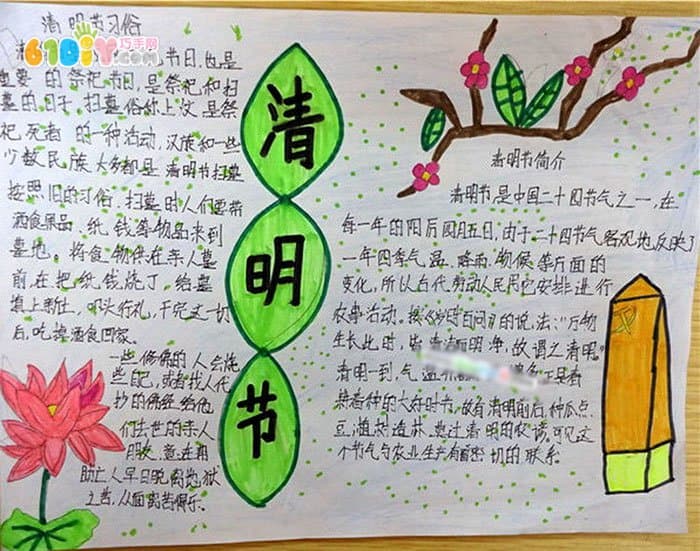 清明节习俗
节日，也是
重要的祭祀节日，是祭祀和扫
墓的日子，扫墓俗称上坟，是祭
祀死者的一种活动，汉族和一些
少数民族大多都是清明节扫墓
按照旧的习俗，扫墓时人们要带
酒食果品、纸钱等物品来到
墓地。将食物供在亲人墓
前，在把纸钱烧了，给墓
填上新土，叩头行礼，干完这一切
后，吃掉酒食回家。
一些修佛的人会烧
些自己，或者找人代
抄的佛经给他
们去世的亲人
朋友，意在期
助亡人早日脱离地狱
之苦，从而离苦得乐。
清
明
节
清明节简介
清明节是中国二十四节气之一，在
每一年的阳历四月五日，由于二十四节气客观地反映了
一年四季气温、降雨、物候等方面的
变化，所以古代劳动人民用它安排进行
农事活动。按《岁时百问》的说法：“万物
生长此时，皆清洁而明净，故谓之清明。”
清明一到，气温
春种的大好时节，故有“清明前后，种瓜点
豆，植树造林，莫过清明的农谚，可见这
个节气与农业生产有着密切的联系
61DIY巧手网